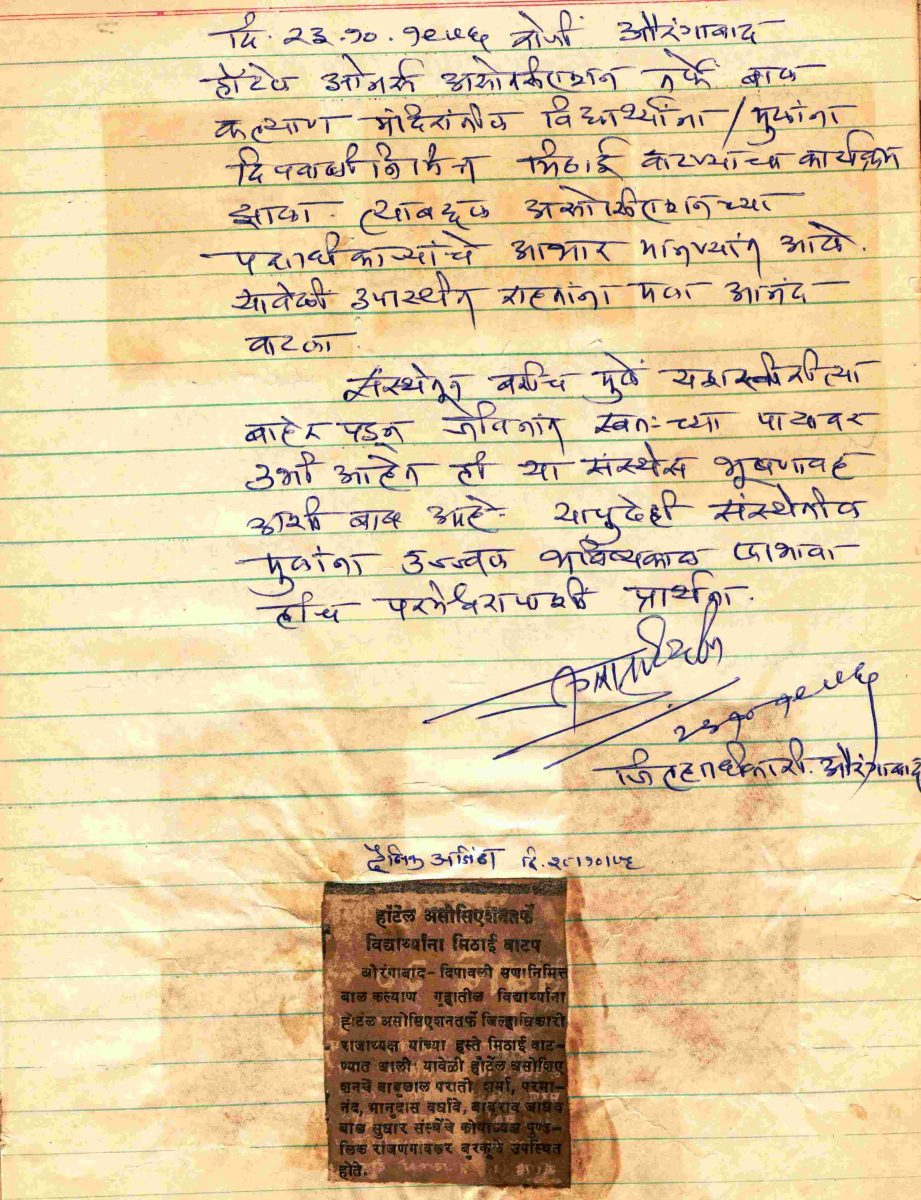 दि. २३.१०.१९७६ रोजी औरंगाबाद
हॉटेल ओनर्स असोसीएशन तर्फे बाल
कल्याण मंदिरांतील विद्यार्थ्यांना / मुलांना
दिपवाळीनिमित्त मिठाई वाटण्याचा कार्यक्रम
झाला. त्याबद्दल असोसीएशनच्या
पदाधिकाऱ्यांचे आभार मानण्यांत आले.
यावेळी उपस्थीत राहतांना मला आनंद
वाटला.
संस्थेतून बरीच मुले यशस्वीरीत्या
बाहेर पडून जीवनांत स्वतःच्या पायावर
उभी आहेत ही या संस्थेस भूषणावह
अशी बाब आहे. यापुढेही संस्थेतील
मुलांना उज्ज्वल भविष्यकाळ लाभावा
हीच परमेश्वरापाशी प्रार्थना.
जिल्हाधिकारी. औरंगाबाद
दैनिक अजिंठा दि. २८।१०।७६
हॉटेल असोसिएशनतर्फे
विद्यार्थ्यांना मिठाई वाटप
औरंगाबाद - दिपावली सणानिमित्त
बाल कल्याण गृहातील विद्यार्थ्यांना
हॉटेल असोसिएशनतर्फे जिल्हाधिकारी
राजाध्यक्ष यांच्या हस्ते मिठाई वाट-
ण्यात आली यावेळी हॉटेल असोशिए
शनचे बाबुलाल पराती शर्मा, परमा-
नंद, भानुदास वर्धावे, बाबुराव जाधव
बाल सुधार संस्थेचे कोषाध्यक्ष पुण्ड-
लिक रांजणगावकर बुरकुले उपस्थित
होते.